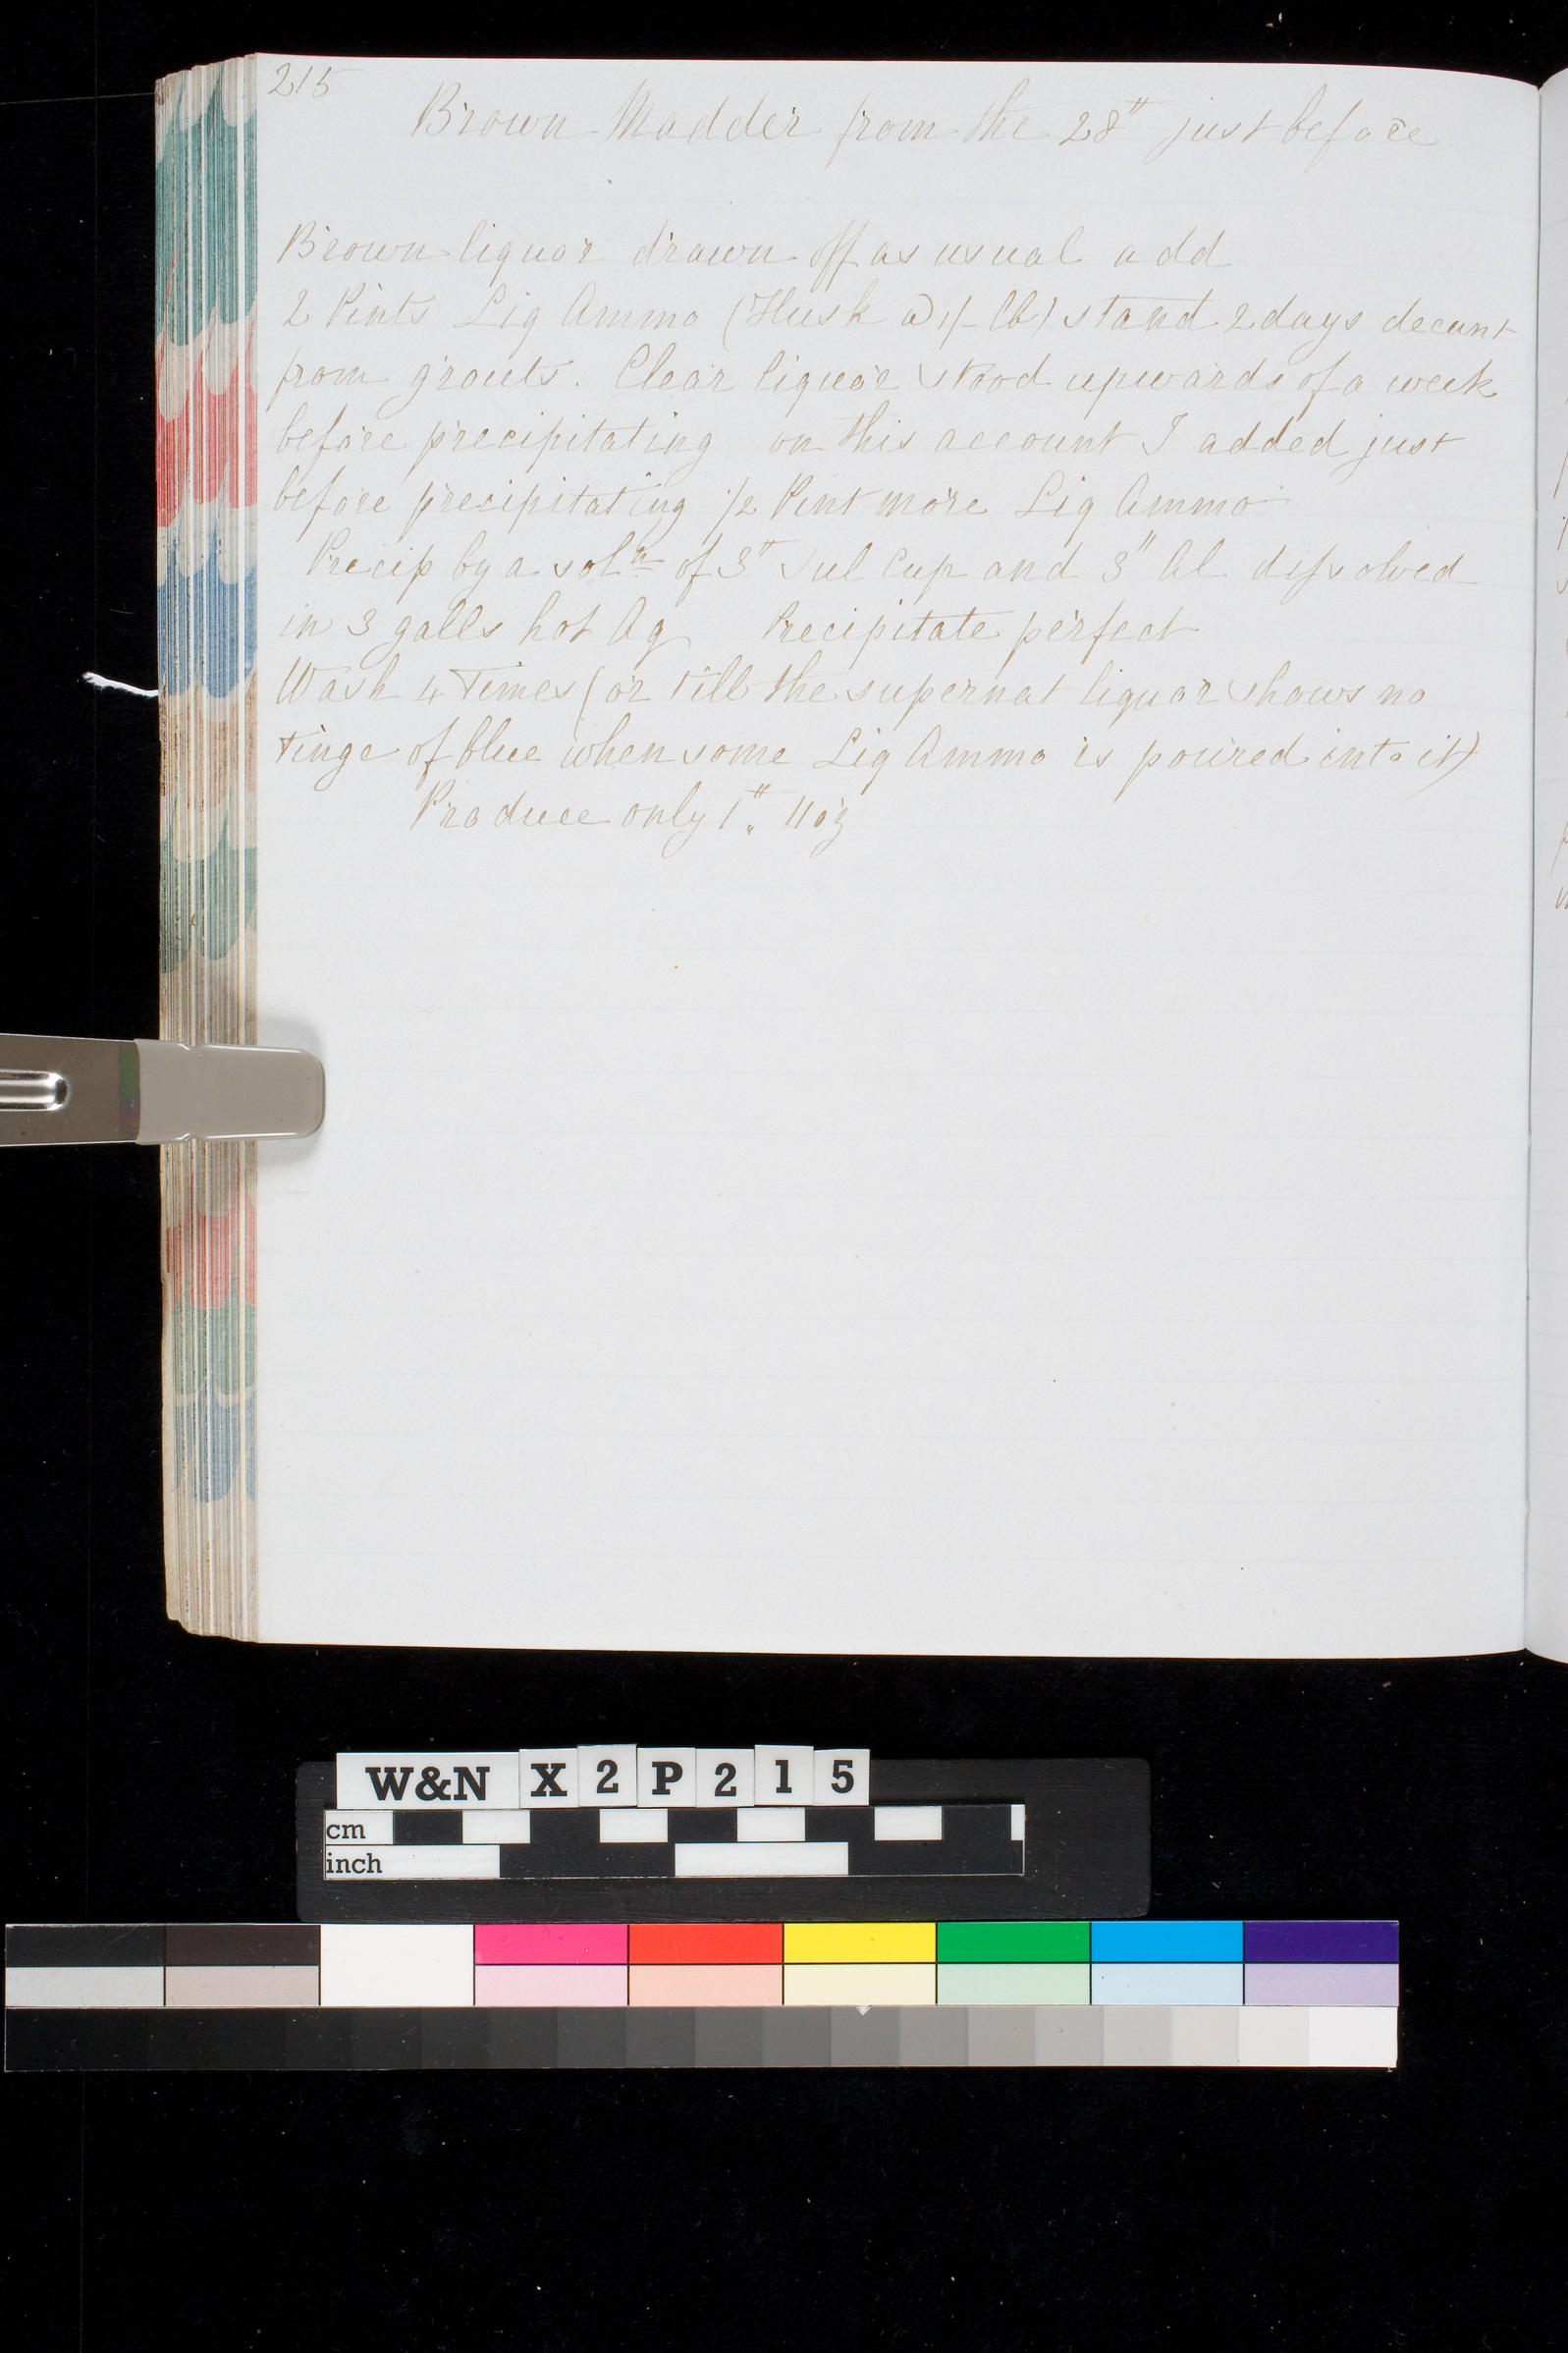 215
Brown Madder from the 28" just before
Brown liquor drawn off as usual add
2 Pints Liq Ammo (Husk @ 1/- lb) stand 2 days decant
from grouts. Clear liquor stood upwards of a week
before precipitating on this account I added just
before precipitating 1/2 Pint more Liq Ammo
Precip by a solⁿ of 3" Sul Cup and 3" Al dissolved
in 3 galls hot Aq Precipitate perfect
Wash 4 Times (or till the supernat liquor shows no
tinge of blue when some Liq Ammo is poured into it)
Produce only 1". 11 oz
W&N X 2 P 2 1 5
cm
inch